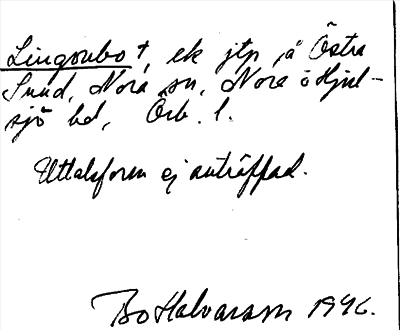 Lingonbo †, ek jtp, å Östra
Sund, Nora sn, Nora o Hjul-
sjö hd, Örb. l.
Uttalsform ej anträffad.
Bo Halvarson 1946.